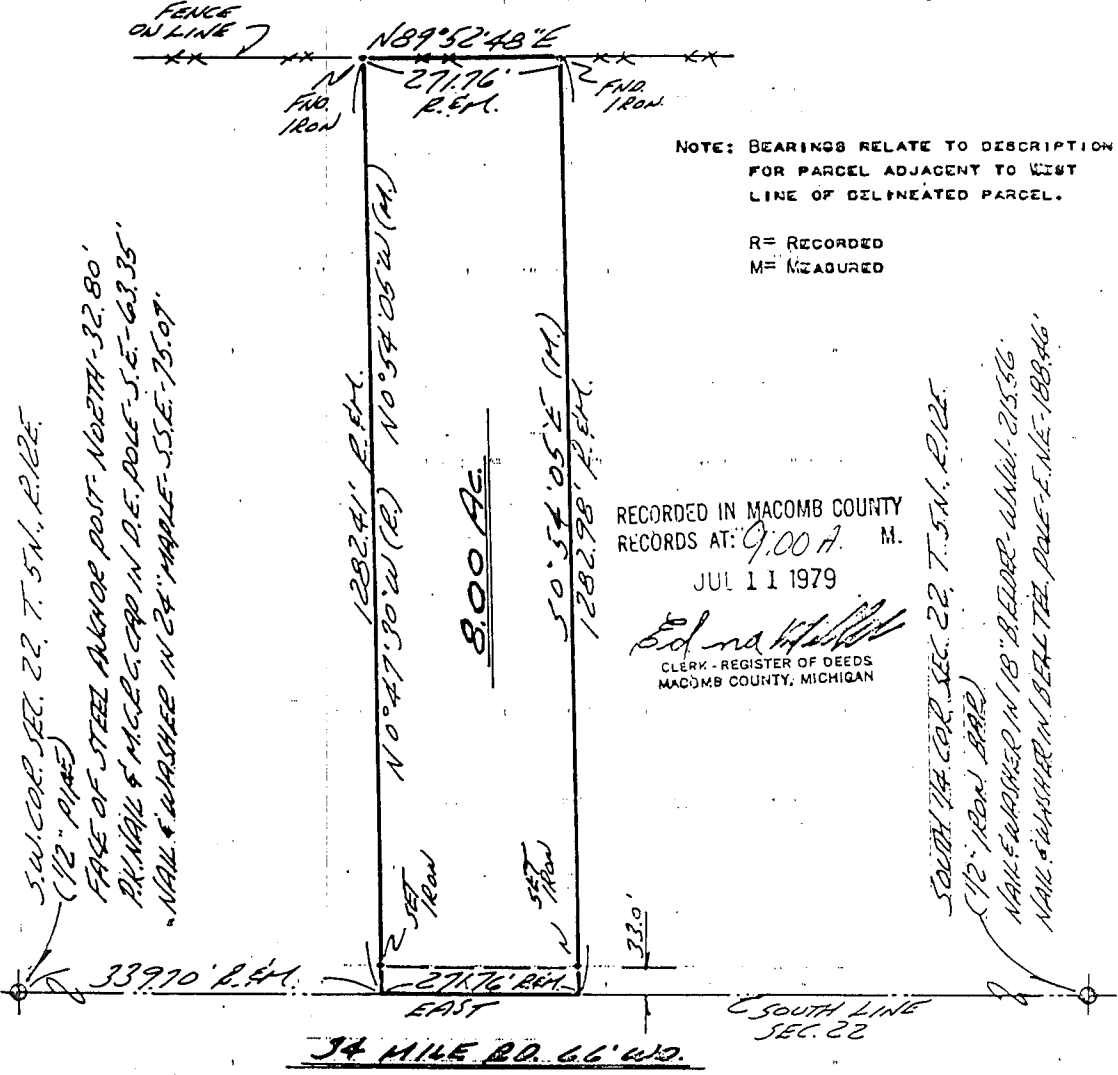 FENCE
ON LINE
N89°52'48"E
271.76'
R.&M.
FND.
IRON
FND.
IRON
NOTE: BEARINGS RELATE TO DESCRIPTION
FOR PARCEL ADJACENT TO WEST
LINE OF DELINEATED PARCEL.
R= RECORDED
M= MEASURED
S.W. COR. SEC. 22, T. 5 N., R. 12 E.
(1/2" PIPE)
FACE OF STEEL ANCHOR POST - NORTH - 32.80'
P.K. NAIL & M.C.R.C. CAP IN D.E. POLE - S.E. - 63.35'
NAIL & WASHER IN 24" MAPLE - S.S.E. - 75.09'
1282.41' R.&M.
N0°47'30"W (R.) N0°54'05"W (M.)
8.00 Ac.
S0°54'05"E (M.)
1282.98' R.&M.
RECORDED IN MACOMB COUNTY
RECORDS AT: 9:00 A. M.
JUL 11 1979
Edna
CLERK - REGISTER OF DEEDS
MACOMB COUNTY, MICHIGAN
SOUTH 1/4 COR. SEC. 22, T. 5 N., R. 12 E.
(1/2" IRON BAR)
NAIL & WASHER IN 18" - W.N.W. - 215.56'
NAIL & WASHER IN BELL TEL. POLE - E.N.E. - 188.46'
SET
IRON
SET
IRON
33.0'
339.70' R.&M.
271.76' R.&M.
EAST
SOUTH LINE
SEC. 22
34 MILE RD. 66' WD.